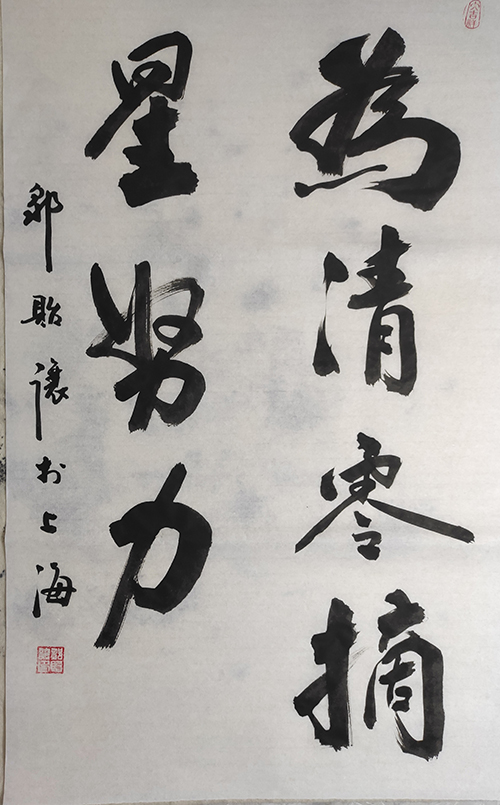 為清零摘
星努力
貽讓於上海